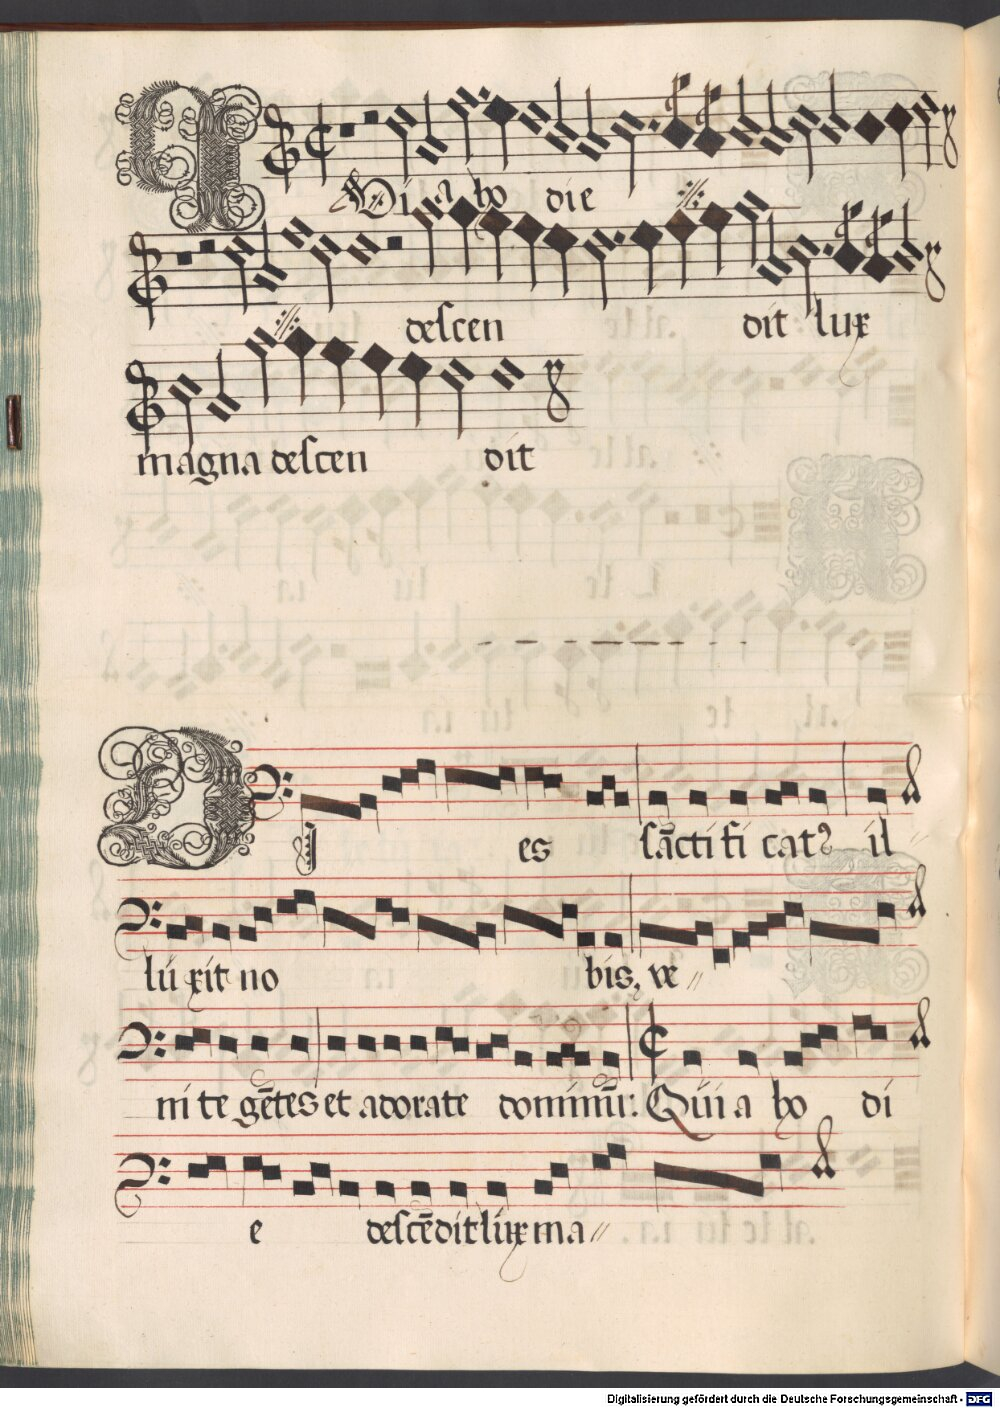 Quia hodie
descen dit lux
magna descen dit
Di es sācti fi catꝰ il
lú xit no bis, ve
ni te gētes et adorate dominū: Quia ho di
e descēdit lux ma
Digitalisierung gefördert durch die Deutsche Forschungsgemeinschaft - DFG